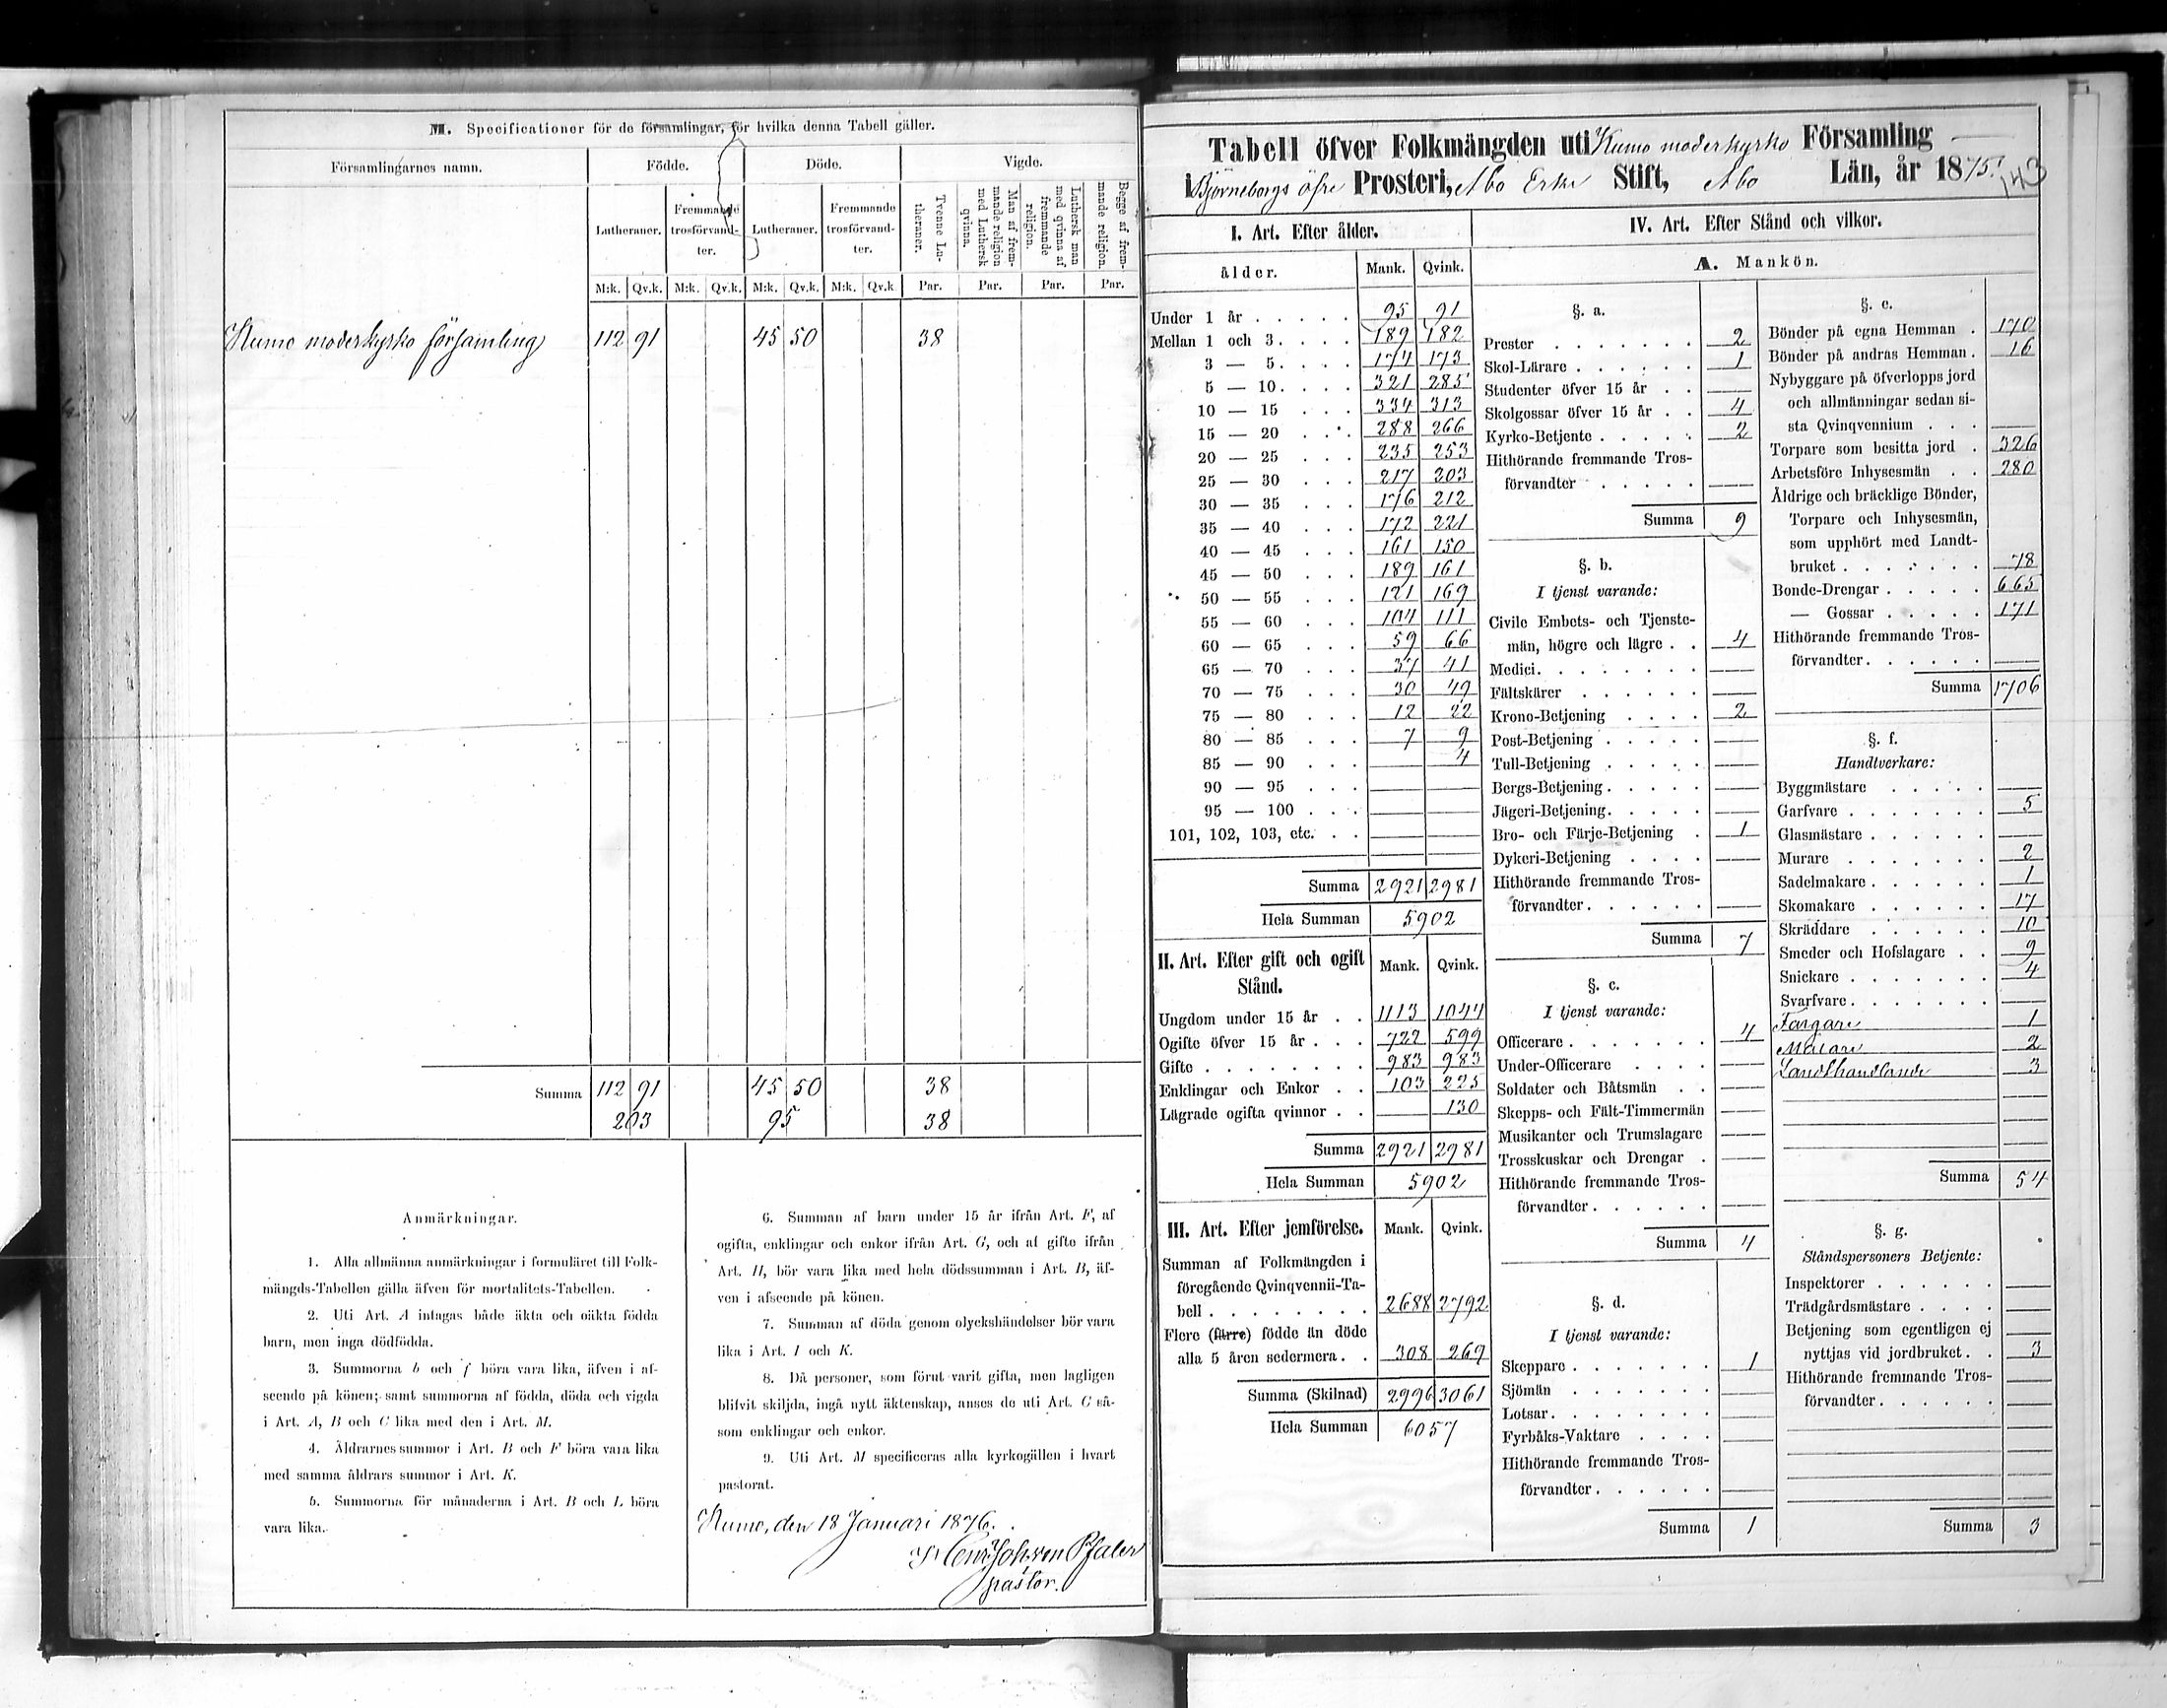 M. Specificationer för de församlingar, för hvilka denna Tabell gäller.
Församlingarnes namn. Födde. Döde. Vigde.
Lutheraner. Fremmande trosförvandter. Lutheraner. Fremmande trosförvandter. Tvenne Lutheraner. Man af fremmande religion med Luthersk qvinna. Luthersk man med qvinna af fremmande religion. Begge af fremmande religion.
M:k. Qv.k. M:k. Qv.k. M:k. Qv.k. M:k. Qv.k Par. Par. Par. Par.
Kumo moderkyrko församling 112 91 45 50 38
Summa 112 91 45 50 38
203 95 38
Anmärkningar.
1. Alla allmänna anmärkningar i formuläret till Folk-
mängds-Tabellen gälla äfven för mortalitets-Tabellen.
2. Uti Art. A intagas både äkta och oäkta födda
barn, men inga dödfödda.
3. Summorna b och f böra vara lika, äfven i af-
seende på könen; samt summorna af födda, döda och vigda
i Art. A, B och C lika med den i Art. M.
4. Åldrarnes summor i Art. B och F böra vara lika
med samma åldrars summor i Art. K.
5. Summorna för månaderna i Art. B och L böra
vara lika.
6. Summan af barn under 15 år ifrån Art. F, af
ogifta, enklingar och enkor ifrån Art. G, och af gifte ifrån
Art. H, bör vara lika med hela dödssumman i Art. B, äf-
ven i afseende på könen.
7. Summan af döda genom olyckshändelser bör vara
lika i Art. I och K.
8. Då personer, som förut varit gifta, men lagligen
blifvit skiljda, ingå nytt äktenskap, anses de uti Art. C så-
som enklingar och enkor.
9. Uti Art. M specificeras alla kyrkogällen i hvart
pastorat.
Kumo, den 18 Januari 1876.
Joh. von Pfaler
pastor.
Tabell öfver Folkmängden uti Kumo moderkyrko Församling
i Björneborgs öfre Prosteri, Åbo Erke Stift, Åbo Län, år 1875.
143
I. Art. Efter ålder.
ålder. Mank. Qvink.
Under 1 år 95 91
Mellan 1 och 3 189 182
3 — 5 174 173
5 — 10 321 285
10 — 15 334 313
15 — 20 288 266
20 — 25 235 253
25 — 30 217 203
30 — 35 176 212
35 — 40 172 221
40 — 45 161 150
45 — 50 189 161
50 — 55 121 169
55 — 60 104 111
60 — 65 59 66
65 — 70 37 41
70 — 75 30 49
75 — 80 12 22
80 — 85 7 9
85 — 90 4
90 — 95
95 — 100
101, 102, 103, etc.
Summa 2921 2981
Hela Summan 5902
II. Art. Efter gift och ogift Stånd. Mank. Qvink.
Ungdom under 15 år 1113 1044
Ogifte öfver 15 år 722 599
Gifte 983 983
Enklingar och Enkor 103 225
Lägrade ogifta qvinnor 130
Summa 2921 2981
Hela Summan 5902
III. Art. Efter jemförelse. Mank. Qvink.
Summan af Folkmängden i
föregående Qvinqvennii-Ta-
bell 2688 2792
Flere (färre) födde än döde
alla 5 åren sedermera 308 269
Summa (Skilnad) 2996 3061
Hela Summan 6057
IV. Art. Efter Stånd och vilkor.
A. Mankön.
§. a.
Prester 2
Skol-Lärare 1
Studenter öfver 15 år
Skolgossar öfver 15 år 4
Kyrko-Betjente 2
Hithörande fremmande Tros-
förvandter
Summa 9
§. b.
I tjenst varande:
Civile Embets- och Tjenste-
män, högre och lägre 4
Medici
Fältskärer
Krono-Betjening 2
Post-Betjening
Tull-Betjening
Bergs-Betjening
Jägeri-Betjening
Bro- och Färje-Betjening 1
Dykeri-Betjening
Hithörande fremmande Tros-
förvandter
Summa 7
§. c.
I tjenst varande:
Officerare 4
Under-Officerare
Soldater och Båtsmän
Skepps- och Fält-Timmermän
Musikanter och Trumslagare
Trosskuskar och Drengar
Hithörande fremmande Tros-
förvandter
Summa 4
§. d.
I tjenst varande:
Skeppare 1
Sjömän
Lotsar
Fyrbåks-Vaktare
Hithörande fremmande Tros-
förvandter
Summa 1
§. e.
Bönder på egna Hemman 170
Bönder på andras Hemman 16
Nybyggare på öfverlopps jord
och allmänningar sedan si-
sta Qvinqvennium
Torpare som besitta jord 326
Arbetsföre Inhysesmän 280
Åldrige och bräcklige Bönder,
Torpare och Inhysesmän,
som upphört med Landt-
bruket 78
Bonde-Drengar 665
— Gossar 171
Hithörande fremmande Tros-
förvandter
Summa 1706
§. f.
Handtverkare:
Byggmästare
Garfvare 5
Glasmästare
Murare 2
Sadelmakare 1
Skomakare 17
Skräddare 10
Smeder och Hofslagare 9
Snickare 4
Svarfvare
Färgare 1
Målare 2
Landthandlande 3
Summa 54
§. g.
Ståndspersoners Betjente:
Inspektorer
Trädgårdsmästare
Betjening som egentligen ej
nyttjas vid jordbruket 3
Hithörande fremmande Tros-
förvandter
Summa 3